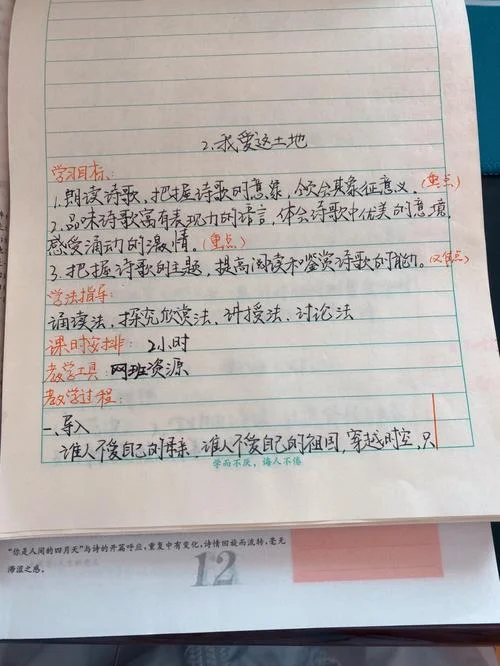 2.我爱这土地
学习目标:
1.朗读诗歌,把握诗歌的意象,领会其象征意义。(重点)
2.品味诗歌富有表现力的语言,体会诗歌中优美的意境,
感受涌动的激情。(重点)
3.把握诗歌的主题,提高阅读和鉴赏诗歌的能力。(难点)
学法指导:
诵读法、探究欣赏法、讲授法、讨论法
课时安排: 2小时
教学工具: 网班资源
教学过程:
一、导入
谁人不爱自己的,谁人不爱自己的祖国,穿越时空,只
学而不厌,诲人不倦
“你是人间的四月天”与诗的开篇呼应,重复中有变化,诗情回旋而流转,毫无
滞涩之感。
12